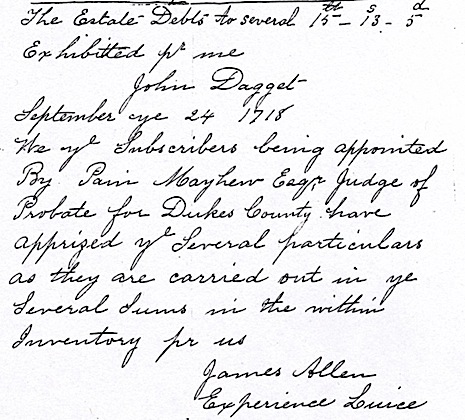 The Estate Debts to several 15th – 13s – 5d
Exhibitted pr me
John Dagget
September ye 24 1718
We ye Subscribers being appointed
By Pain Mayhew Esqr Judge of
Probate for Dukes County have
apprized ye Several particulars
as they are carried out in ye
Several Sums in the within
Inventory pr us
James Allen
Experience Luice